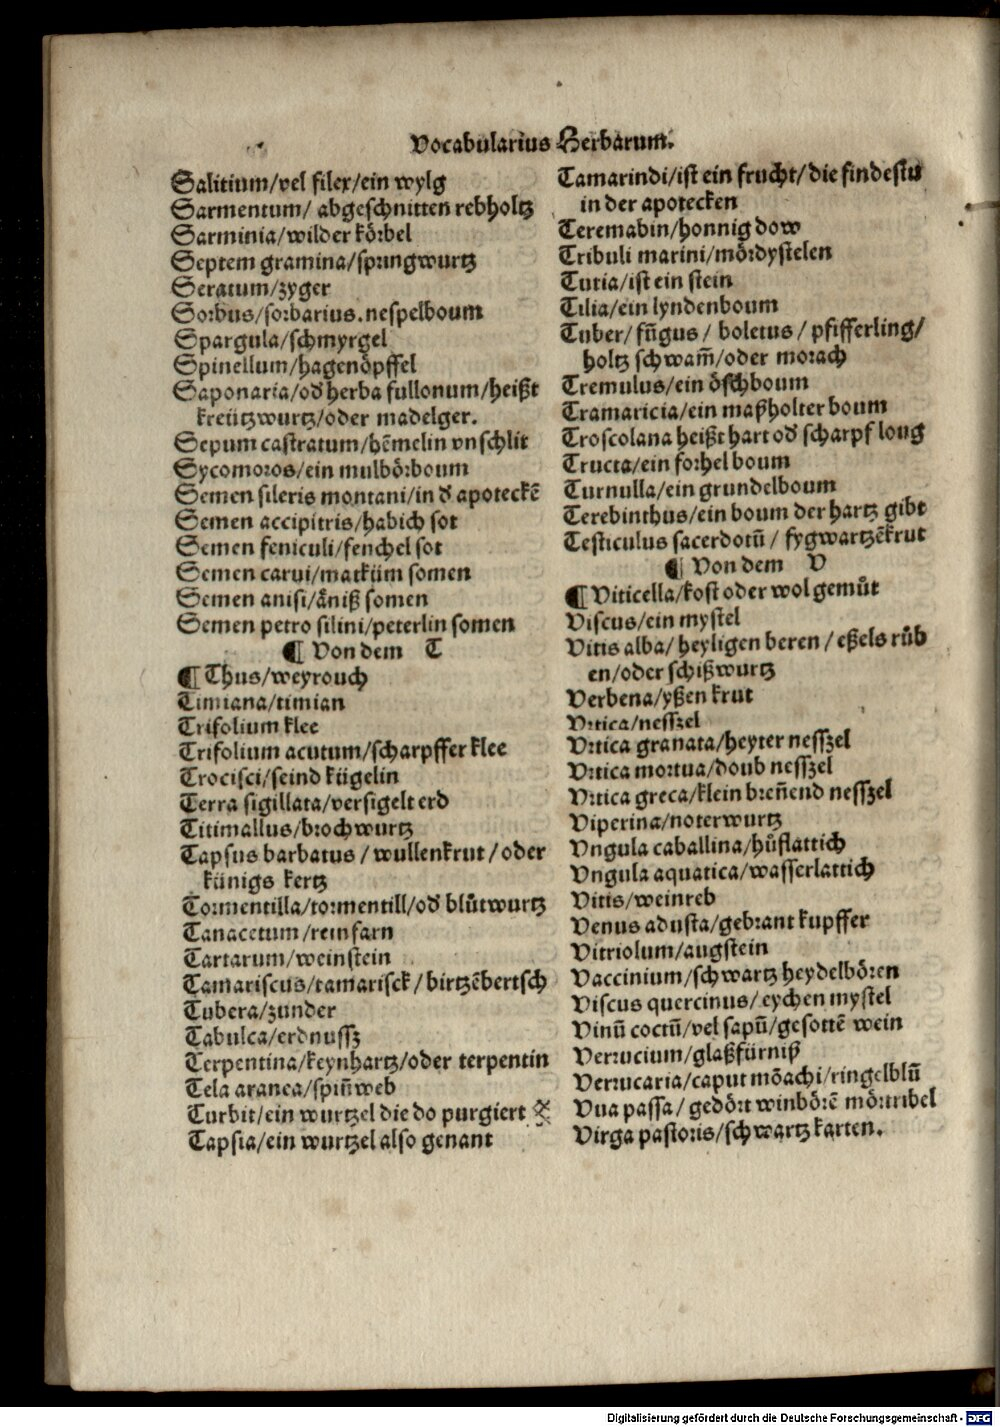 Vocabularius Herbarum.
Salitium/vel silex/ein wylg
Sarmentum/ abgeschnitten rebholtz
Sarminia/wilder körbel
Septem gramina/springwurtz
Seratum/zyger
Sorbus/sorbarius.nespelboum
Spargula/schmyrgel
Spinellum/hagenöpffel
Saponaria/od herba fullonum/heißt
kreützwurtz/oder madelger.
Sepum castratum/hēmelin vnschlit
Sycomoros/ein mulbörboum
Semen sileris montani/in d apoteckē
Semen accipitris/habich sot
Semen feniculi/fenchel sot
Semen carui/matküm somen
Semen anisi/äniß somen
Semen petro silini/peterlin somen
¶ Von dem T
¶ Thus/weyrouch
Timiana/timian
Trifolium klee
Trifolium acutum/scharpffer klee
Trocisci/seind kügelin
Terra sigillata/versigelt erd
Titimallus/brochwurtz
Tapsus barbatus / wullenkrut / oder
künigs kertz
Tormentilla/tormentill/od blůtwurtz
Tanacetum/reinfarn
Tartarum/weinstein
Tamariscus/tamarisck / birtzēbertsch
Tubera/zunder
Tabulca/erdnussz
Terpentina/keynhartz/oder terpentin
Tela aranea/spiñweb
Turbit/ein wurtzel die do purgiert
Tapsia/ein wurtzel also genant
Tamarindi/ist ein frucht/ die findestu
in der apotecken
Teremabin/honnig dow
Tribuli marini/mördystelen
Tutia/ist ein stein
Tilia/ein lyndenboum
Tuber/ fūgus / boletus / pfifferling/
holtz schwam̄/oder morach
Tremulus/ein öschboum
Tramaricia/ein maßholter boum
Troscolana heißt hart od scharpf loug
Tructa/ein forhel boum
Turnulla/ein grundelboum
Terebinthus/ein boum der hartz gibt
Testiculus sacerdotū / fygwartzēkrut
¶ Von dem V
¶ Viticella/kost oder wolgemůt
Viscus/ein mystel
Vitis alba/ heyligen beren / eßels růb
en/oder schißwurtz
Verbena/yßen krut
Vrtica/nesszel
Vrtica granata/heyter nesszel
Vrtica mortua/doub nesszel
Vrtica greca/klein breñend nesszel
Viperina/noterwurtz
Vngula caballina/hůflattich
Vngula aquatica/wasserlattich
Vitis/weinreb
Venus adusta/gebrant kupffer
Vitriolum/augstein
Vaccinium/schwartz heydelbören
Viscus quercinus/eychen mystel
Vinū coctū/vel sapū/gesottē wein
Verrucium/glaßfürniß
Verrucaria/caput mōachi/ringelblū
Vua passa/ gedört winbörē mörtribel
Virga pastoris/schwartz karten.
Digitalisierung gefördert durch die Deutsche Forschungsgemeinschaft - DFG